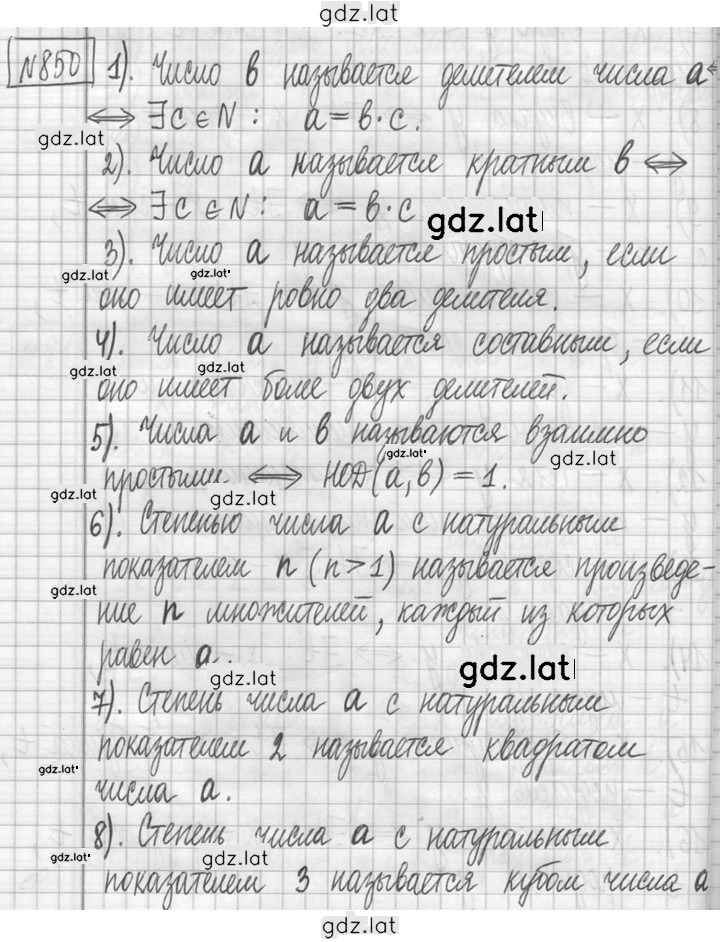 gdz.lat
№850 1). Число в называется делителем числа а ⇔
⇔ ∃ c ∈ N : a = в · c.
gdz.lat
2). Число а называется кратным в ⇔
⇔ ∃ c ∈ N : a = в · c gdz.lat
3). Число а называется простым, если
gdz.lat gdz.lat
оно имеет ровно два делителя.
4). Число а называется составным, если
gdz.lat gdz.lat
оно имеет более двух делителей.
5). Числа а и в называются взаимно
gdz.lat gdz.lat
простыми ⇔ НОД(а, в) = 1.
gdz.lat gdz.lat
6). Степенью числа а с натуральным
показателем n (n > 1) называется произведе-
gdz.lat
ние n множителей, каждый из которых
равен а. gdz.lat
gdz.lat
7). Степень числа а с натуральным
показателем 2 называется квадратом
gdz.lat
числа а.
8). Степень числа а с натуральным
gdz.lat gdz.lat
показателем 3 называется кубом числа а
gdz.lat